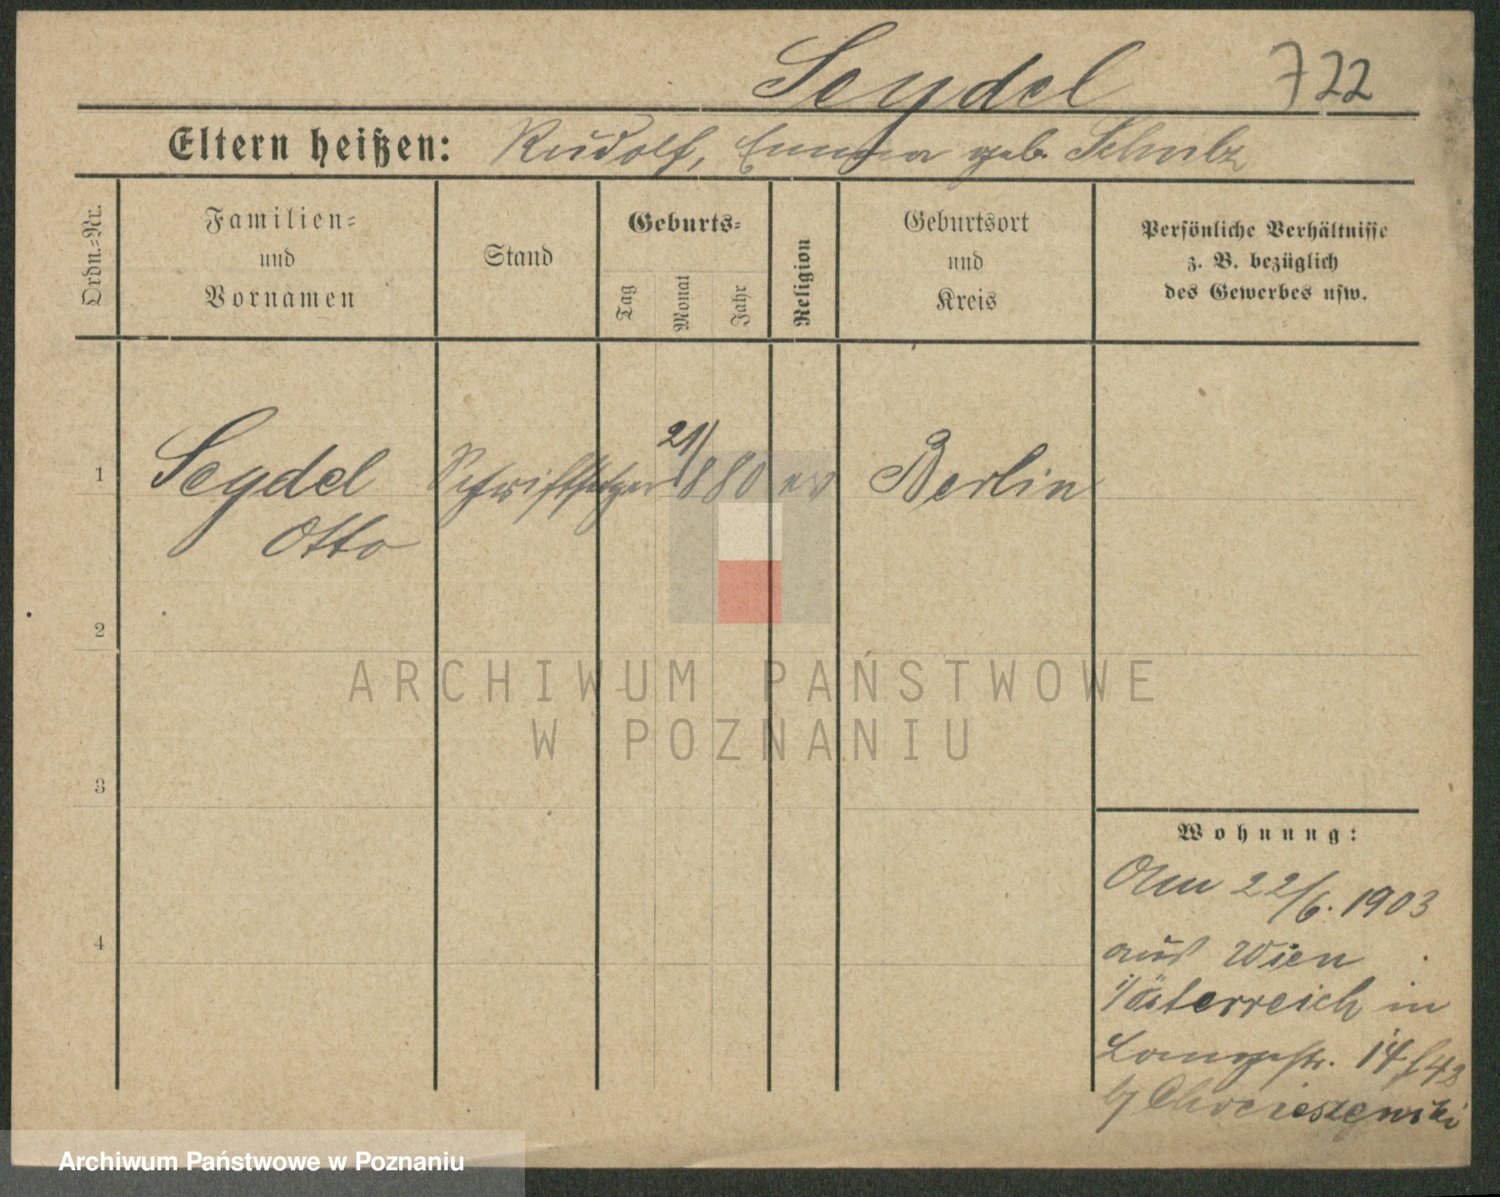 Seydel 722
Eltern heißen: Rudolf, Emma geb. Schulz
Ordn.-Nr.
Familien-
und
Vornamen
Stand
Geburts-
Tag
Monat
Jahr
Religion
Geburtsort
und
Kreis
Persönliche Verhältnisse
z. B. bezüglich
des Gewerbes usw.
1 Seydel Schriftsetzer 21/ 1880 ev Berlin
Otto
2
3
4
Wohnung:
Am 22/6. 1903
aus Wien
i/Österreich in
Langestr. 14
ARCHIWUM PAŃSTWOWE
W POZNANIU
Archiwum Państwowe w Poznaniu